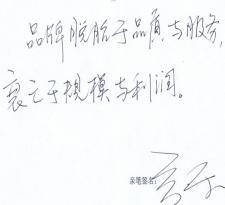 品牌脱胎于品质与服务,
衰亡于规模与利润。
亲笔签名: